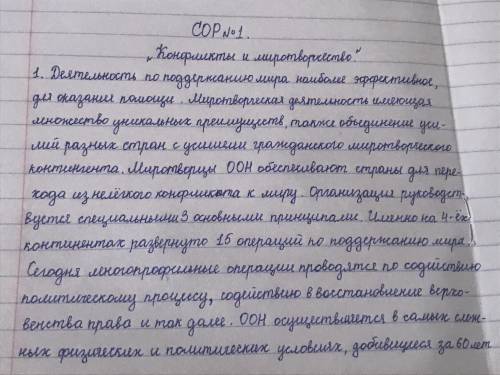 СОР №1.
„Конфликты и миротворчество."
1. Деятельность по поддержанию мира наиболе эффективное,
для оказания помощи. Миротворческая деятельность имеющая
множество уникальных преимуществ, также объединение уси-
лий разных стран с усилиями гражданского миротворческого
контингента. Миротворцы ООН обеспечивают страны для пере-
хода из нелёгкого конфликта к миру. Организация руководст-
вуется специальными 3 основными принципами. Именно на 4-ёх
континентах развернуто 15 операций по поддержанию мира.
Сегодня многопрофильные операции проводятся по содействию
политическому процессу, содействию в восстановление верхо-
венства права и так далее. ООН осуществляется в самых слож-
ных физических и политических условиях, добившиеся за 60 лет